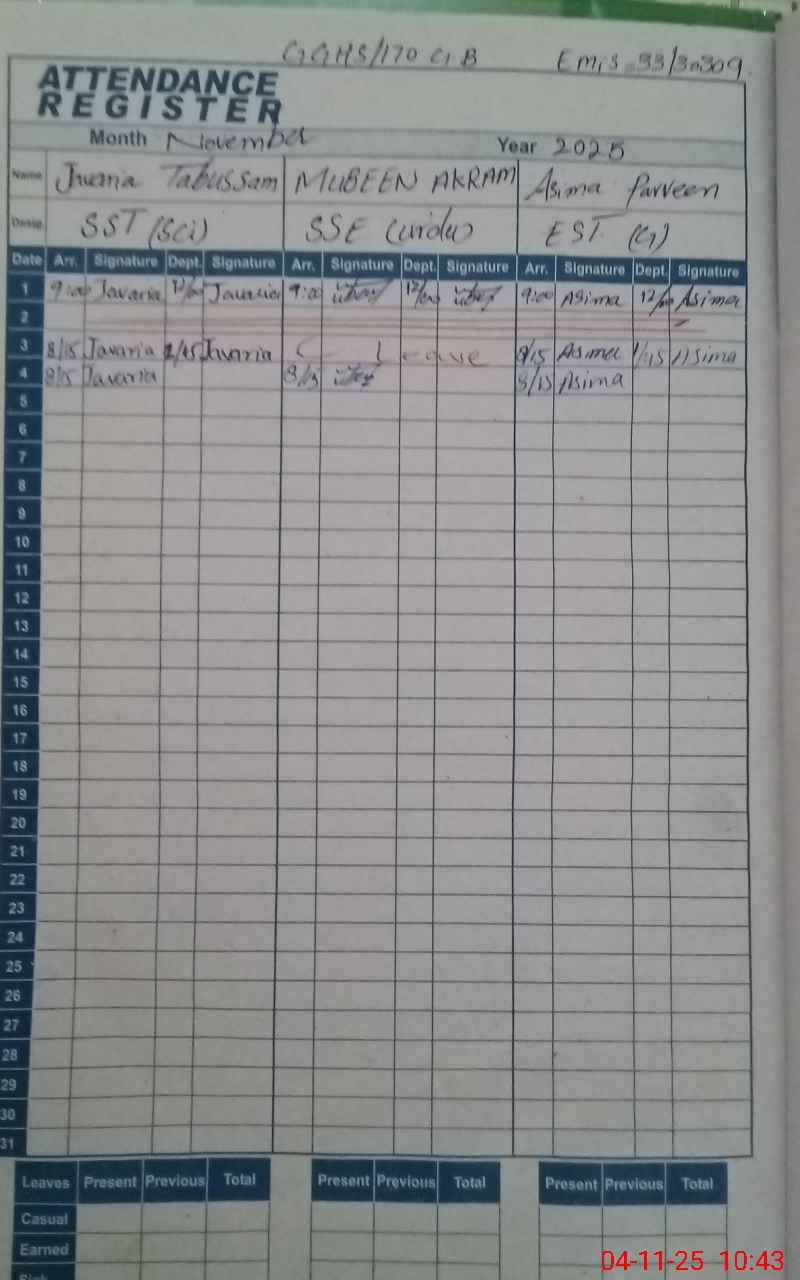 GGHS/170 GB Emis 33/30309
ATTENDANCE
REGISTER
Month November Year 2025
Name Javaria Tabussam MUBEEN AKRAM Asima Parveen
Desig. SST (Sci) SSE (urdu) EST (G)
Date Arr. Signature Dept. Signature Arr. Signature Dept. Signature Arr. Signature Dept. Signature
1 9:00 Javaria 12/00 Javaria 9:00 12/00 9:00 Asima 12/00 Asima
2
3 8/15 Javaria Javaria Leave 8/15 Asima 1/15 Asima
4 8/15 Javaria 8/15 8/15 Asima
5
6
7
8
9
10
11
12
13
14
15
16
17
18
19
20
21
22
23
24
25
26
27
28
29
30
31
Leaves Present Previous Total Present Previous Total Present Previous Total
Casual
Earned
04-11-25 10:43